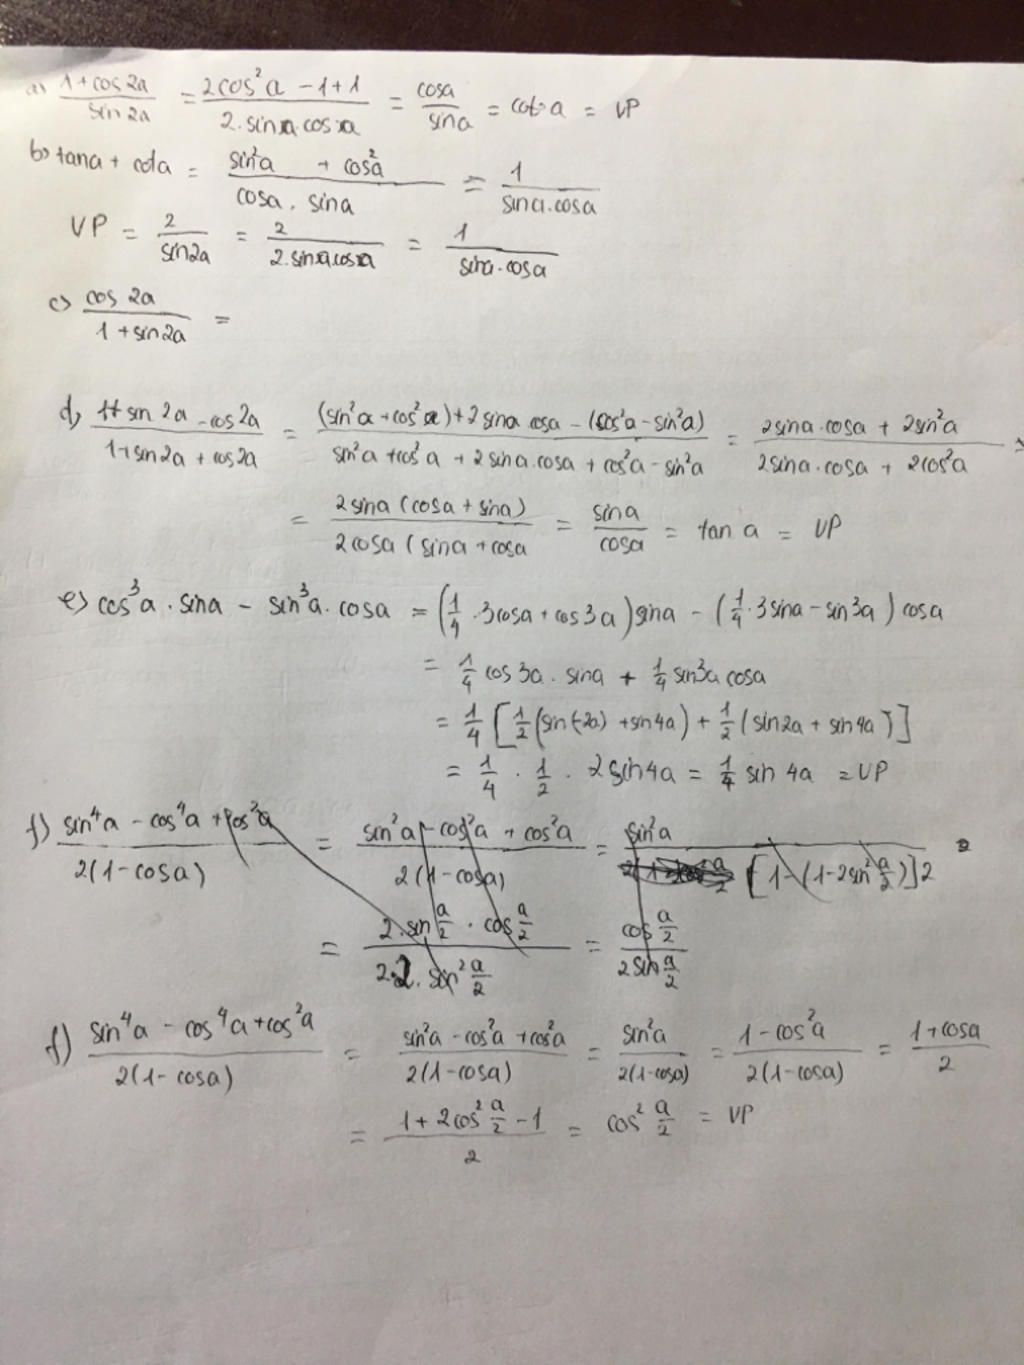 a) (1 + cos 2a)/(sin 2a) = (2cos²a − 1 + 1)/(2.sina.cosa) = cosa/sina = cot a = VP
b) tana + cota = (sin²a + cos²a)/(cosa . sina) = 1/(sina.cosa)
VP = 2/sin2a = 2/(2.sinacosa) = 1/(sina.cosa)
c) (cos 2a)/(1 + sin2a) =
d) (1 + sin 2a - cos2a)/(1 + sin2a + cos2a) = ((sin²a + cos²a) + 2sina cosa − (cos²a − sin²a))/(sin²a + cos²a + 2sina.cosa + cos²a − sin²a) = (2sina.cosa + 2sin²a)/(2sina.cosa + 2cos²a) =
= (2sina (cosa + sina))/(2cosa (sina + cosa) = sina/cosa = tan a = VP
e) cos³a . sina − sin³a . cosa = (1/4 . 3cosa + cos3a)sina − (1/4 . 3sina − sin3a) cosa
= 1/4 cos3a . sina + 1/4 sin3a cosa
= 1/4 [1/2 (sin(-2a) + sin4a) + 1/2 (sin2a + sin4a)]
= 1/4 . 1/2 . 2sin4a = 1/4 sin 4a = VP
f) (sin⁴a − cos⁴a + cos²a)/(2(1 − cosa)) = (sin²a − cos²a + cos²a)/(2(1 − cosa)) = sin²a/([1 − (1 − 2sin² a/2)]2) =
= (2.sin a/2 . cos a/2)/(2.2.sin² a/2) = (cos a/2)/(2sin a/2)
f) (sin⁴a − cos⁴a + cos²a)/(2(1 − cosa)) = (sin²a − cos²a + cos²a)/(2(1 − cosa)) = sin²a/(2(1-cosa)) = (1 − cos²a)/(2(1 − cosa)) = (1 + cosa)/2
= (1 + 2cos² a/2 − 1)/2 = cos² a/2 = VP